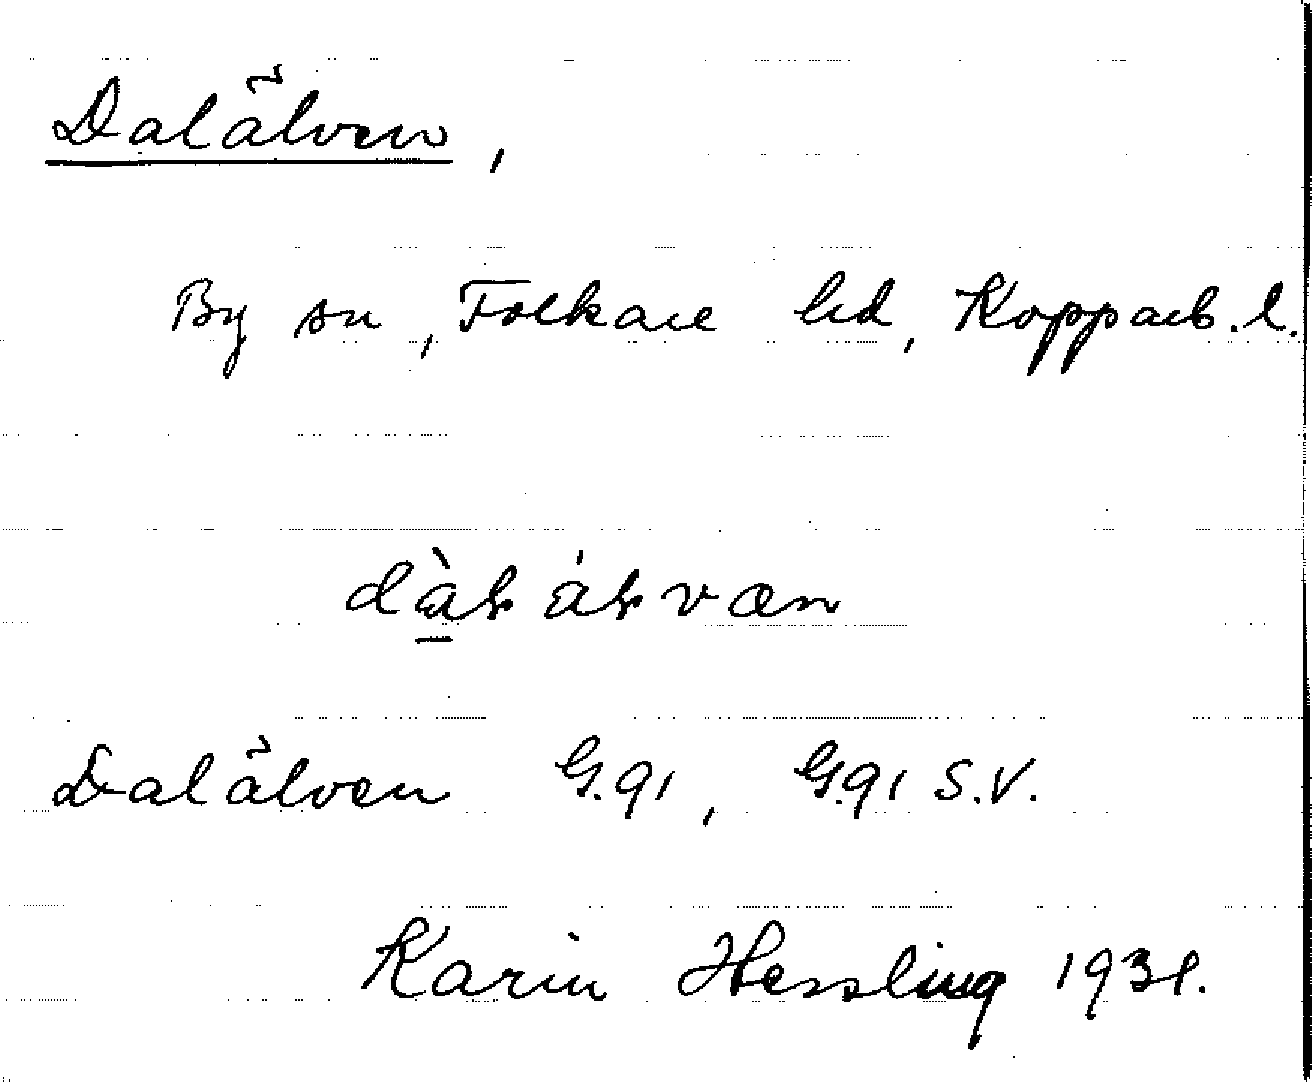 Dalälven,
By sn, Folkare hd, Kopparb. l.
Dalälven G.91, G.91 S.V.
Karin Hessling 1931.